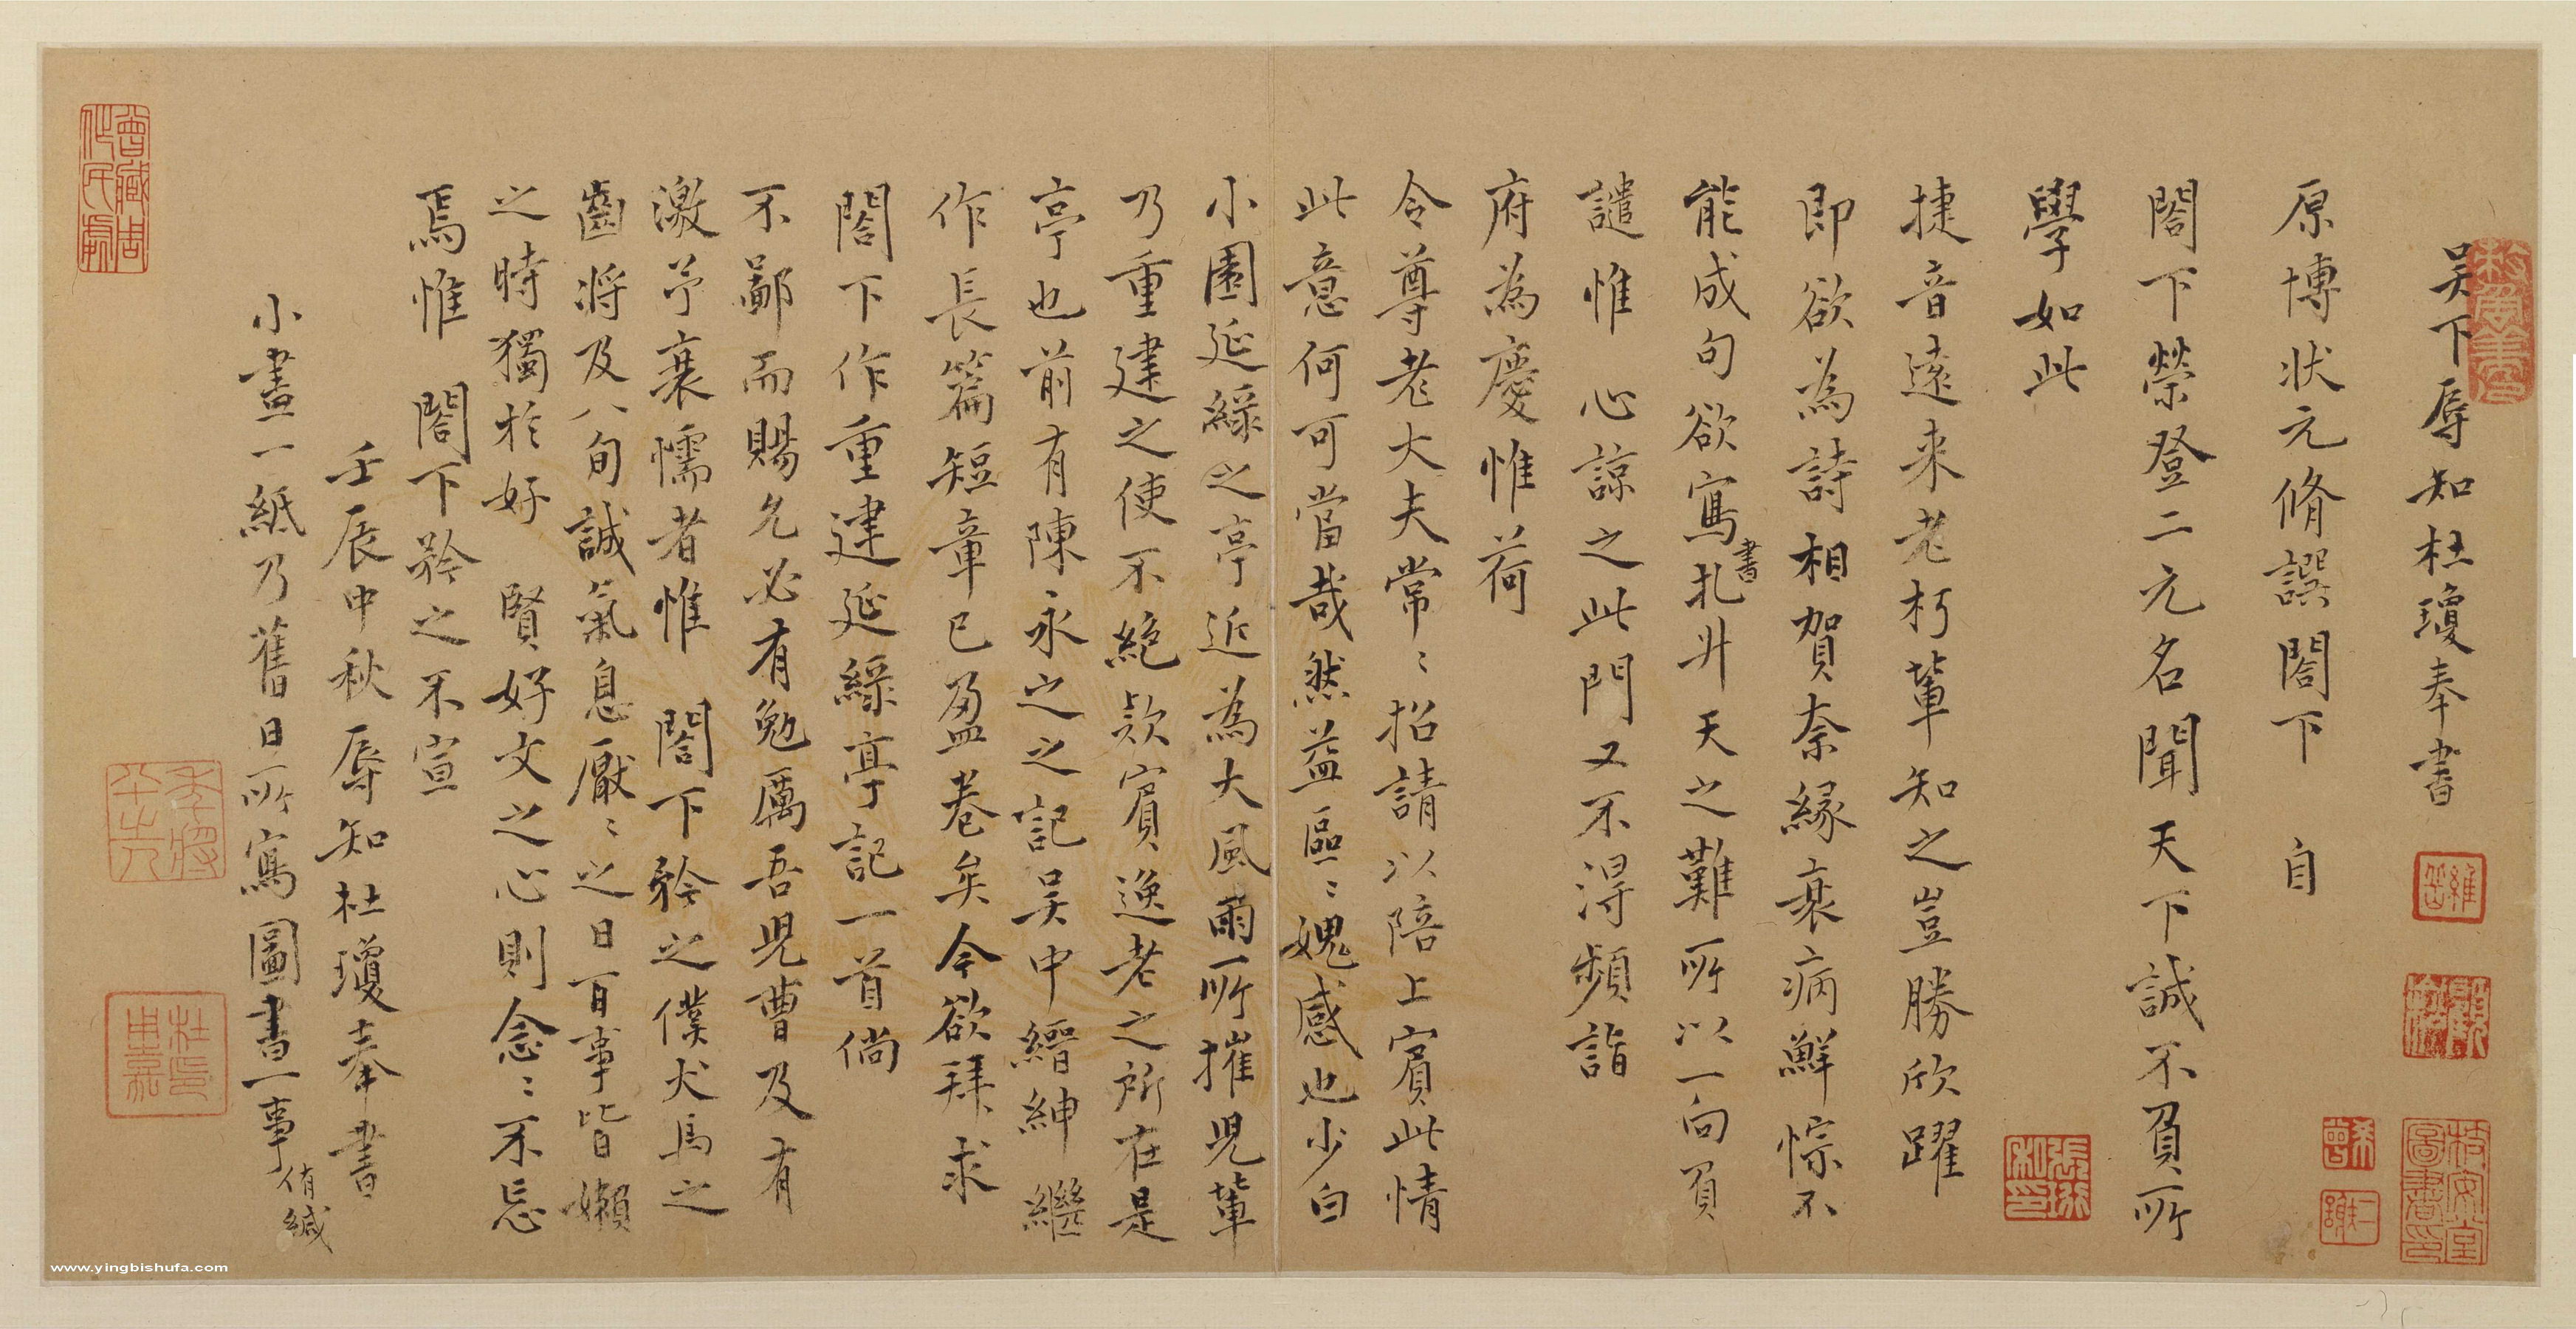 吳下辱知杜瓊奉書
原博狀元脩譔閤下 自
閤下榮登二元名聞天下誠不負所
學如此
捷音遠來老朽輩知之豈勝欣躍
即欲為詩相賀奈緣衰病鮮悰不
能成句欲寫書札升天之難所以一向負
譴惟心諒之此門又不得頻詣
府為慶惟荷
令尊老大夫常〻招請以陪上賓此情
此意何可當哉然益區〻媿感也少白
小園延綠之亭近為大風雨所摧児輩
乃重建之使不絕欵賓逸老之所在是
亭也前有陳永之之記吳中縉紳繼
作長篇短章已盈卷矣今欲拜求
閤下作重建延綠亭記一首倘
不鄙而賜允必有勉厲吾児曹及有
激予衰懦者惟 閤下矜之僕犬馬之
齒將及八旬誠氣息厭〻之日百事皆嬾
之時獨於好 賢好文之心則念〻不忘
焉惟 閤下矜之不宣
壬辰中秋辱知杜瓊奉書
小畫一紙乃舊日所寫圖書一事侑緘
曾藏周作民處
杜氏用嘉
張珩私印
www.yingbishufa.com